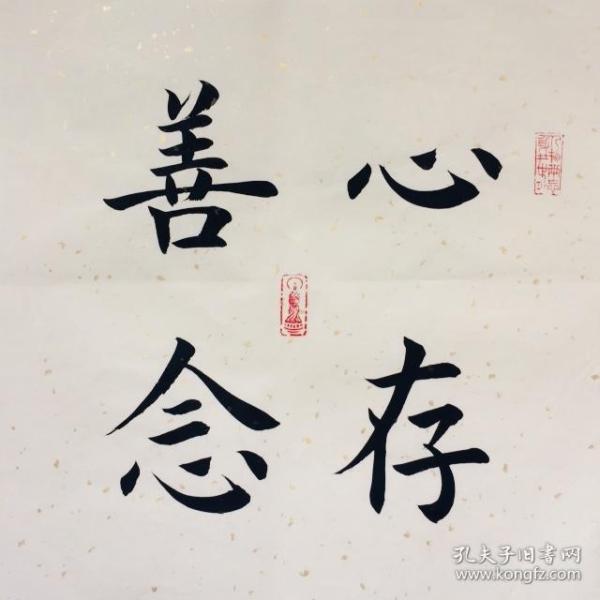 心存
善念
孔夫子旧书网
www.kongfz.com